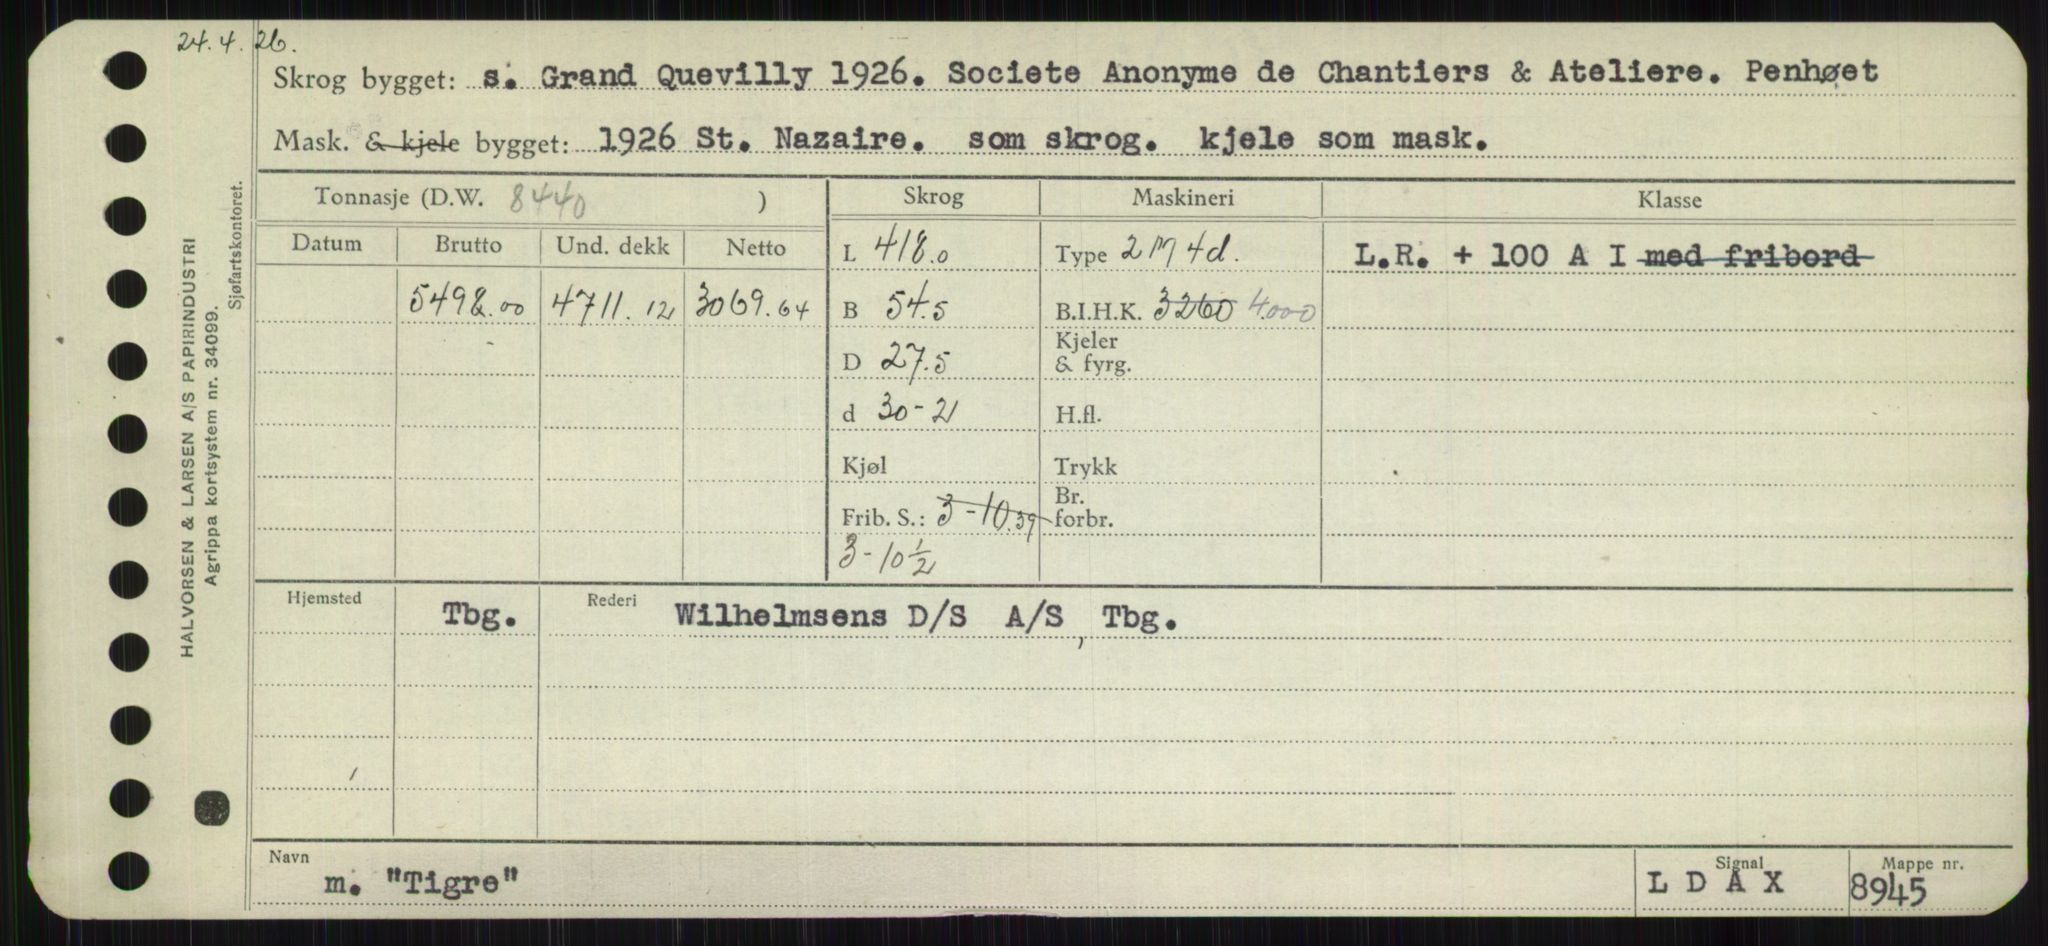 24.4.26.
Skrog bygget: s. Grand Quevilly 1926. Societe Anonyme de Chantiers & Ateliere. Penhøet
Mask. & kjele bygget: 1926 St. Nazaire. som skrog. kjele som mask.
Tonnasje (D.W. 8440 ) Skrog Maskineri Klasse
Datum Brutto Und. dekk Netto
L 418.0 Type 2 M 4d. L.R. + 100 A I med fribord
5498.00 4711.12 3069.64 B 54.5 B.I.H.K. 3260 4.000
D 27.5 Kjeler & fyrg.
d 30-21 H.fl.
Kjøl Trykk
Frib. S.: 3-10.39 Br. forbr.
3-10 1/2
Hjemsted Tbg. Rederi Wilhelmsens D/S A/S, Tbg.
Navn m. "Tigre" Signal L D A X Mappe nr. 8945
HALVORSEN & LARSEN A/S PAPIRINDUSTRI
Agrippa kortsystem nr. 34099.
Sjøfartskontoret.